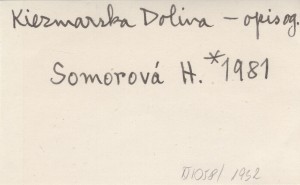 Kiezmarska Dolina – opis og.
Somorová H. *1981
1058/ 1952